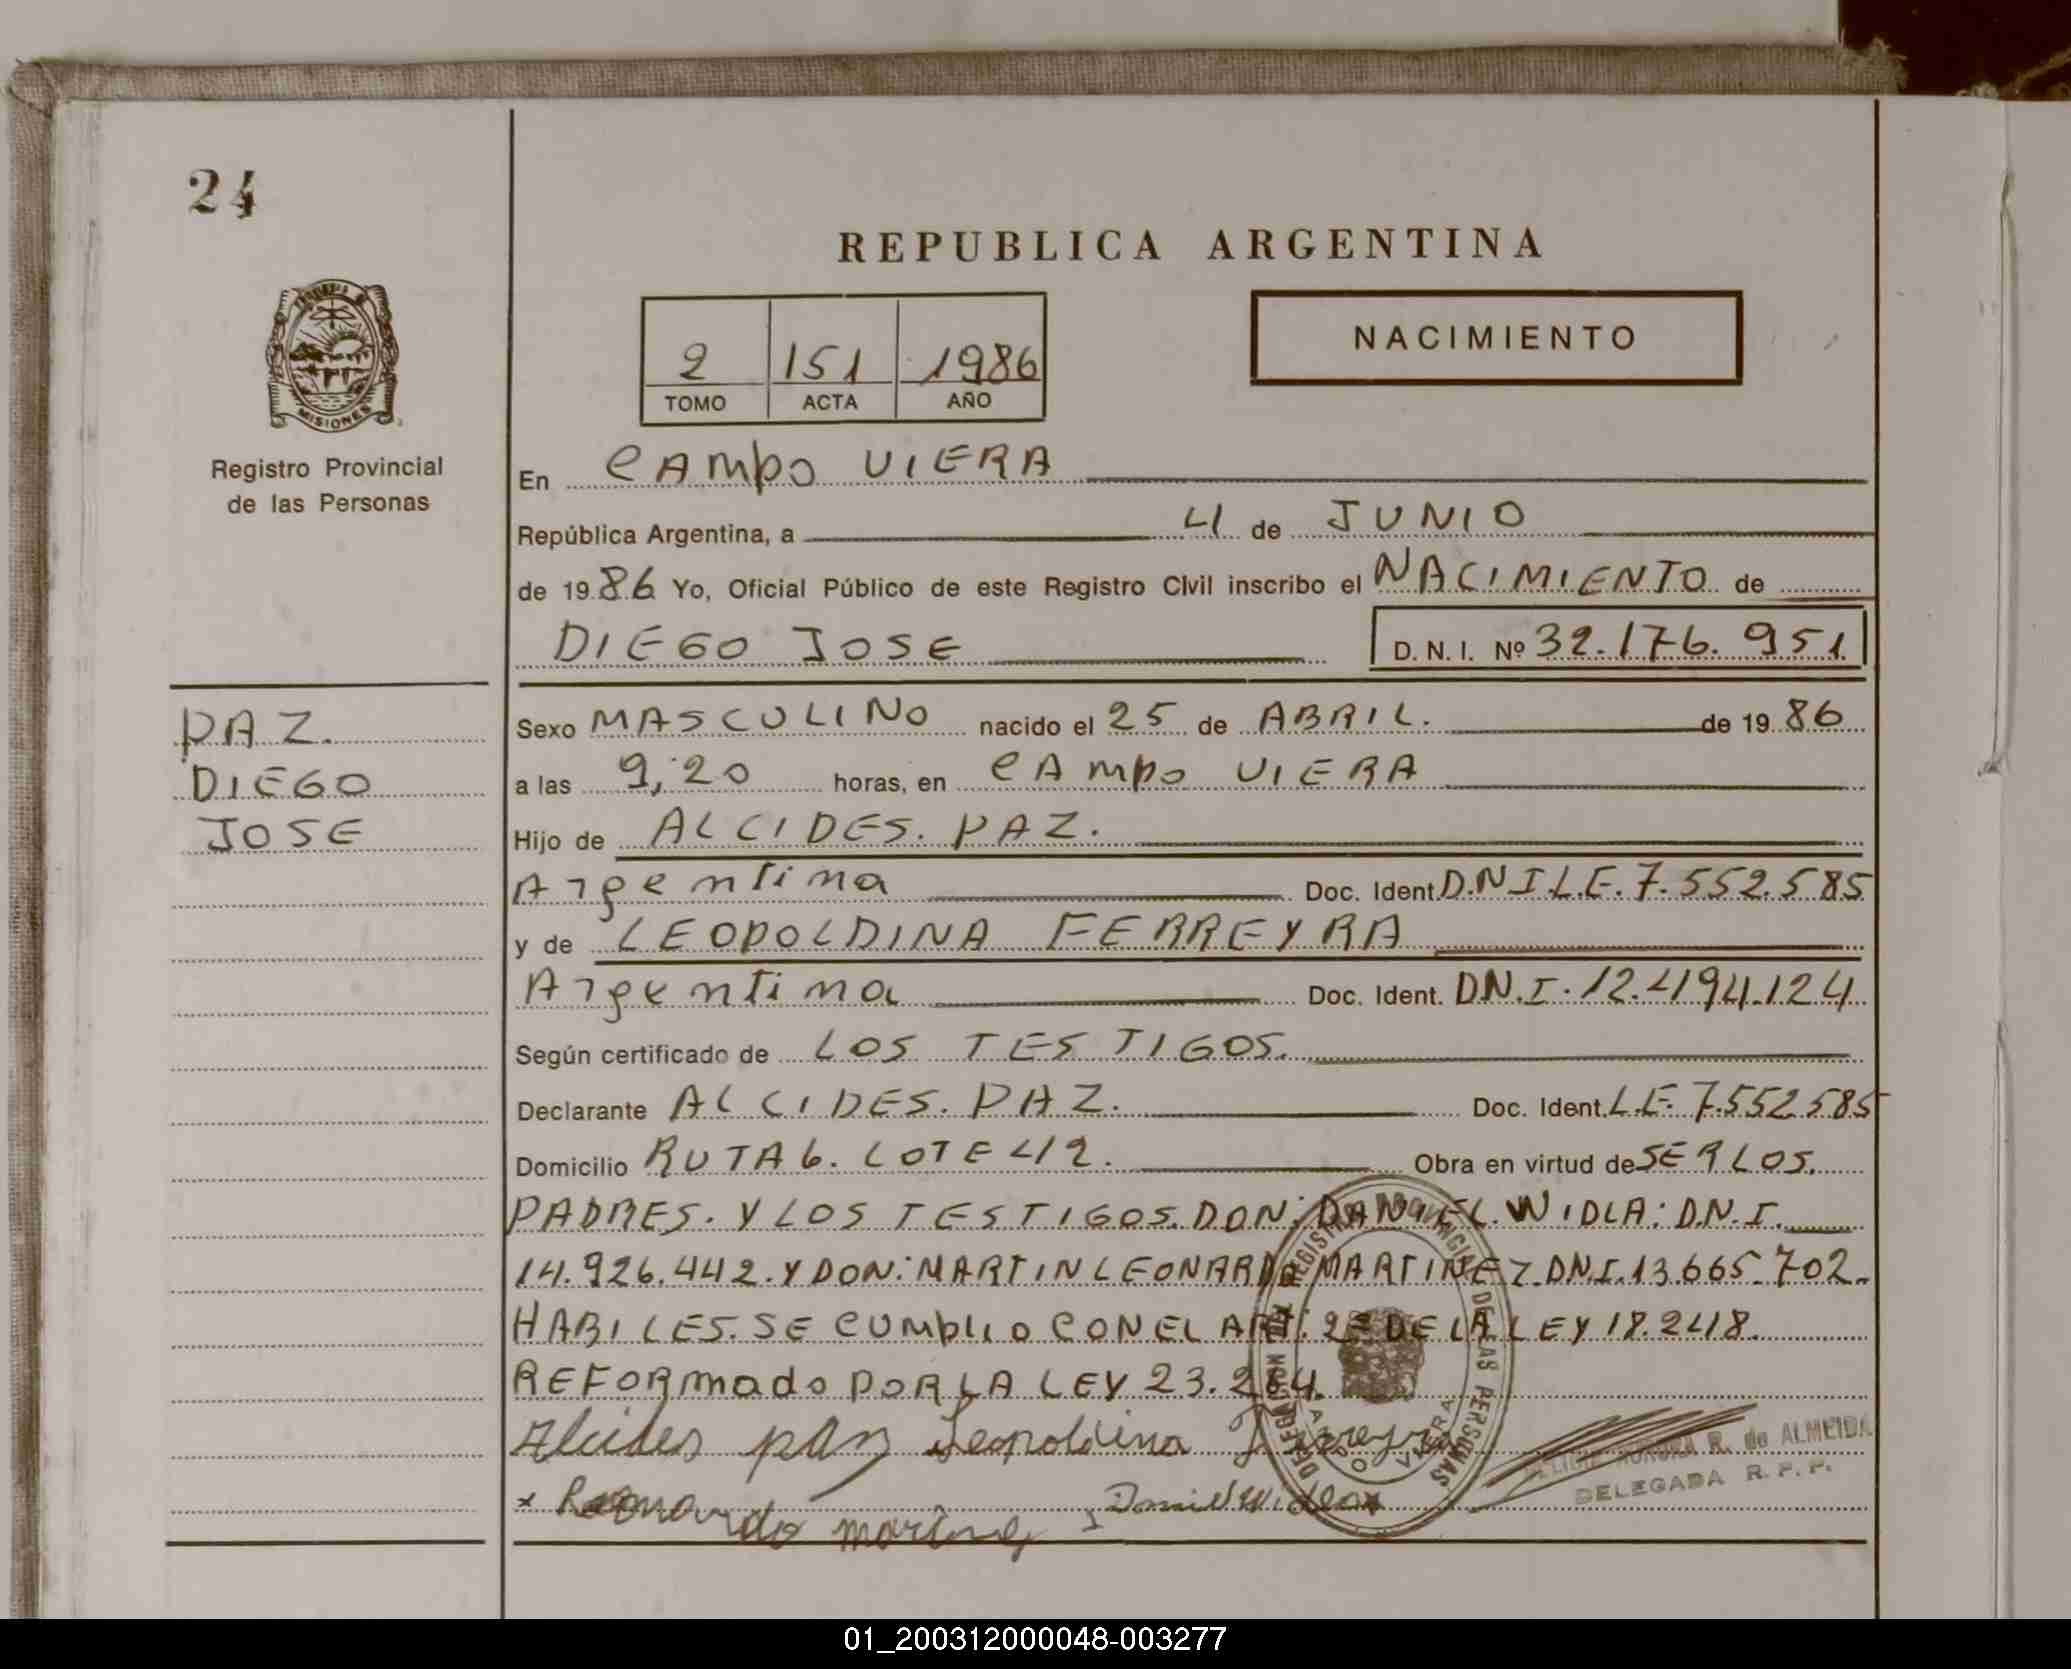 24
REPUBLICA ARGENTINA
NACIMIENTO
2 151 1986
TOMO ACTA AÑO
MISIONES
Registro Provincial
de las Personas
En CAMPO VIERA
República Argentina, a 4 de JUNIO
de 1986 Yo, Oficial Público de este Registro Civil inscribo el NACIMIENTO de
DIEGO JOSE D. N. I. Nº 32.176.951
PAZ.
DIEGO
JOSE
Sexo MASCULINO nacido el 25 de ABRIL. de 1986
a las 9,20 horas, en CAMPO VIERA
Hijo de ALCIDES. PAZ.
Argentina Doc. Ident. D.N.I.L.E. 7.552.585
y de LEOPOLDINA FERREYRA
Argentina Doc. Ident. D.N.I. 12.494.124
Según certificado de LOS TESTIGOS.
Declarante ALCIDES. PAZ. Doc. Ident. L.E. 7.552.585
Domicilio RUTA 6. LOTE 42. Obra en virtud de SER LOS.
PADRES. Y LOS TESTIGOS. DON: DANIEL. WIDLA: D.N.I.
14.926.442. Y DON: MARTIN LEONARDO MARTINEZ. D.N.I. 13.665.702.
HABILES. SE CUMPLIO CON EL ART. 2º DE LA LEY 18.248.
REFORMADO POR LA LEY 23.264.
Alcides paz Leopoldina Ferreyra
Daniel Widla
REGISTRO PROVINCIAL DE LAS PERSONAS
CAMPO VIERA
AURORA R. de ALMEIDA
DELEGADA R. P. P.
01_200312000048-003277